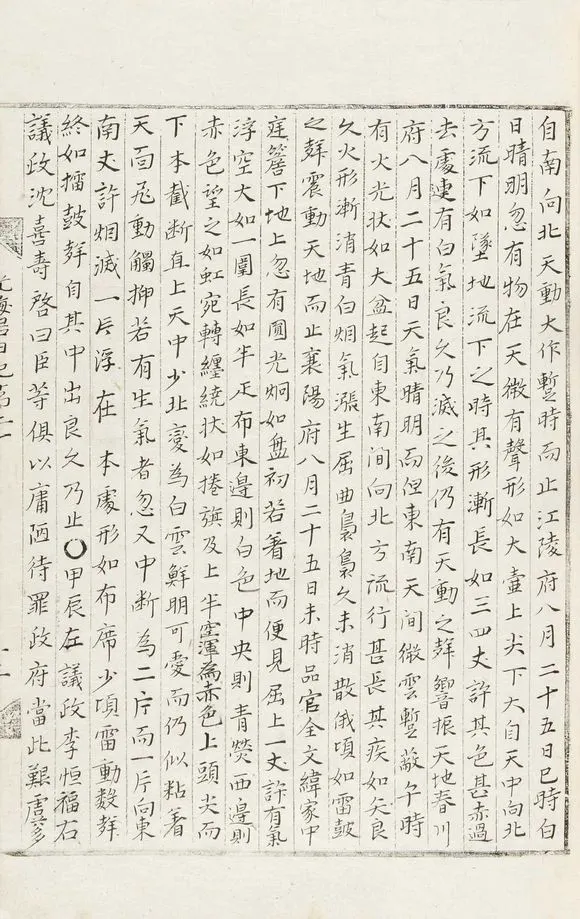 自南向北天動大作蹔時而止江陵府八月二十五日巳時白
日晴明忽有物在天微有聲形如大壺上尖下大自天中向北
方流下如墜地流下之時其形漸長如三四丈許其色甚赤過
去處連有白氣良久乃滅之後仍有天動之聲響振天地春川
府八月二十五日天氣晴明而但東南天間微雲蹔蔽午時
有火光狀如大盆起自東南間向北方流行甚長其疾如矢良
久火形漸消青白烟氣漲生屈曲裊裊久未消散俄頃如雷鼓
之聲震動天地而止襄陽府八月二十五日未時品官全文緯家中
庭簷下地上忽有圓光炯如盤初若着地而便見屈上一丈許有氣
浮空大如一圍長如半疋布東邊則白色中央則青熒西邊則
赤色望之如虹宛轉纏繞狀如捲旗及上半空渾為赤色上頭尖而
下本截斷直上天中少北變為白雲鮮明可愛而仍似粘着
天面飛動觸抑若有生氣者忽又中斷為二片而一片向東
南丈許烟滅一片浮在 本處形如布席少頃雷動數聲
終如擂鼓聲自其中出良久乃止○甲辰左議政李恒福右
議政沈喜壽啓曰臣等俱以庸陋待罪政府當此艱虞多